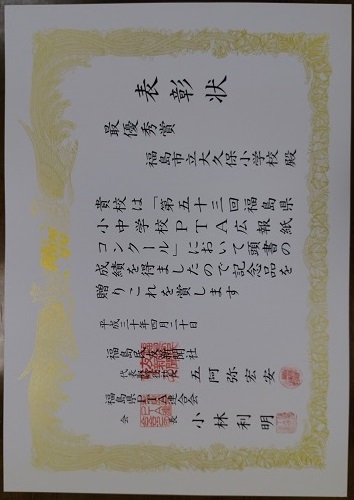 表彰状
最優秀賞
福島市立大久保小学校 殿
貴校は「第五十三回福島県
小中学校PTA広報紙
コンクール」において頭書の
成績を得ましたので記念品を
贈りこれを賞します
平成三十年四月二十日
福島民友新聞社
代表取締役社長 五阿弥宏安
福島県PTA連合会
会長 小林利明